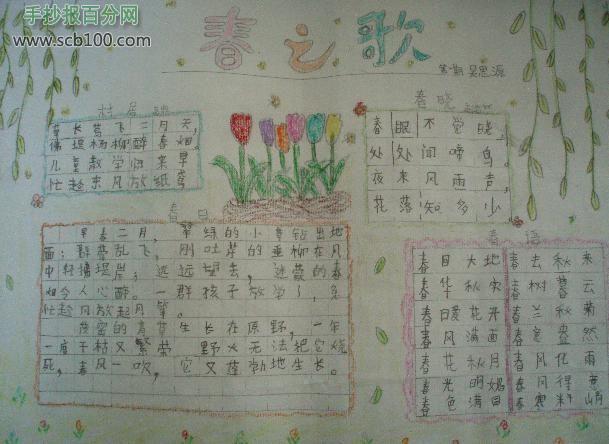 手抄报百分网
www.scb100.com
春之歌
村居
草长莺飞二月天，
拂堤杨柳醉春烟。
儿童散学归来早
忙趁东风放纸鸢
春晓
春眠不觉晓，
处处闻啼鸟
夜来风雨声，
花落知多少
春日
早春二月，翠绿的小草钻出地
面；群莺乱飞，刚吐芽的垂柳在风
中料拂堤岸；远远望去，迷蒙的春
烟令人心醉。一群孩子放学了，急
忙趁月放起月筝。
茂密的青草生长在原野，一年
一度干枯又繁荣 野火无法把它烧
死，春风一吹，它又蓬勃地生长。
春语
春回大地 春去秋来
春华秋实 春树暮云
春暖花开 春兰秋菊
春风满面 春意盎然
春花秋月 春风化雨
春光明媚 春风得意
春色满园 春寒料峭